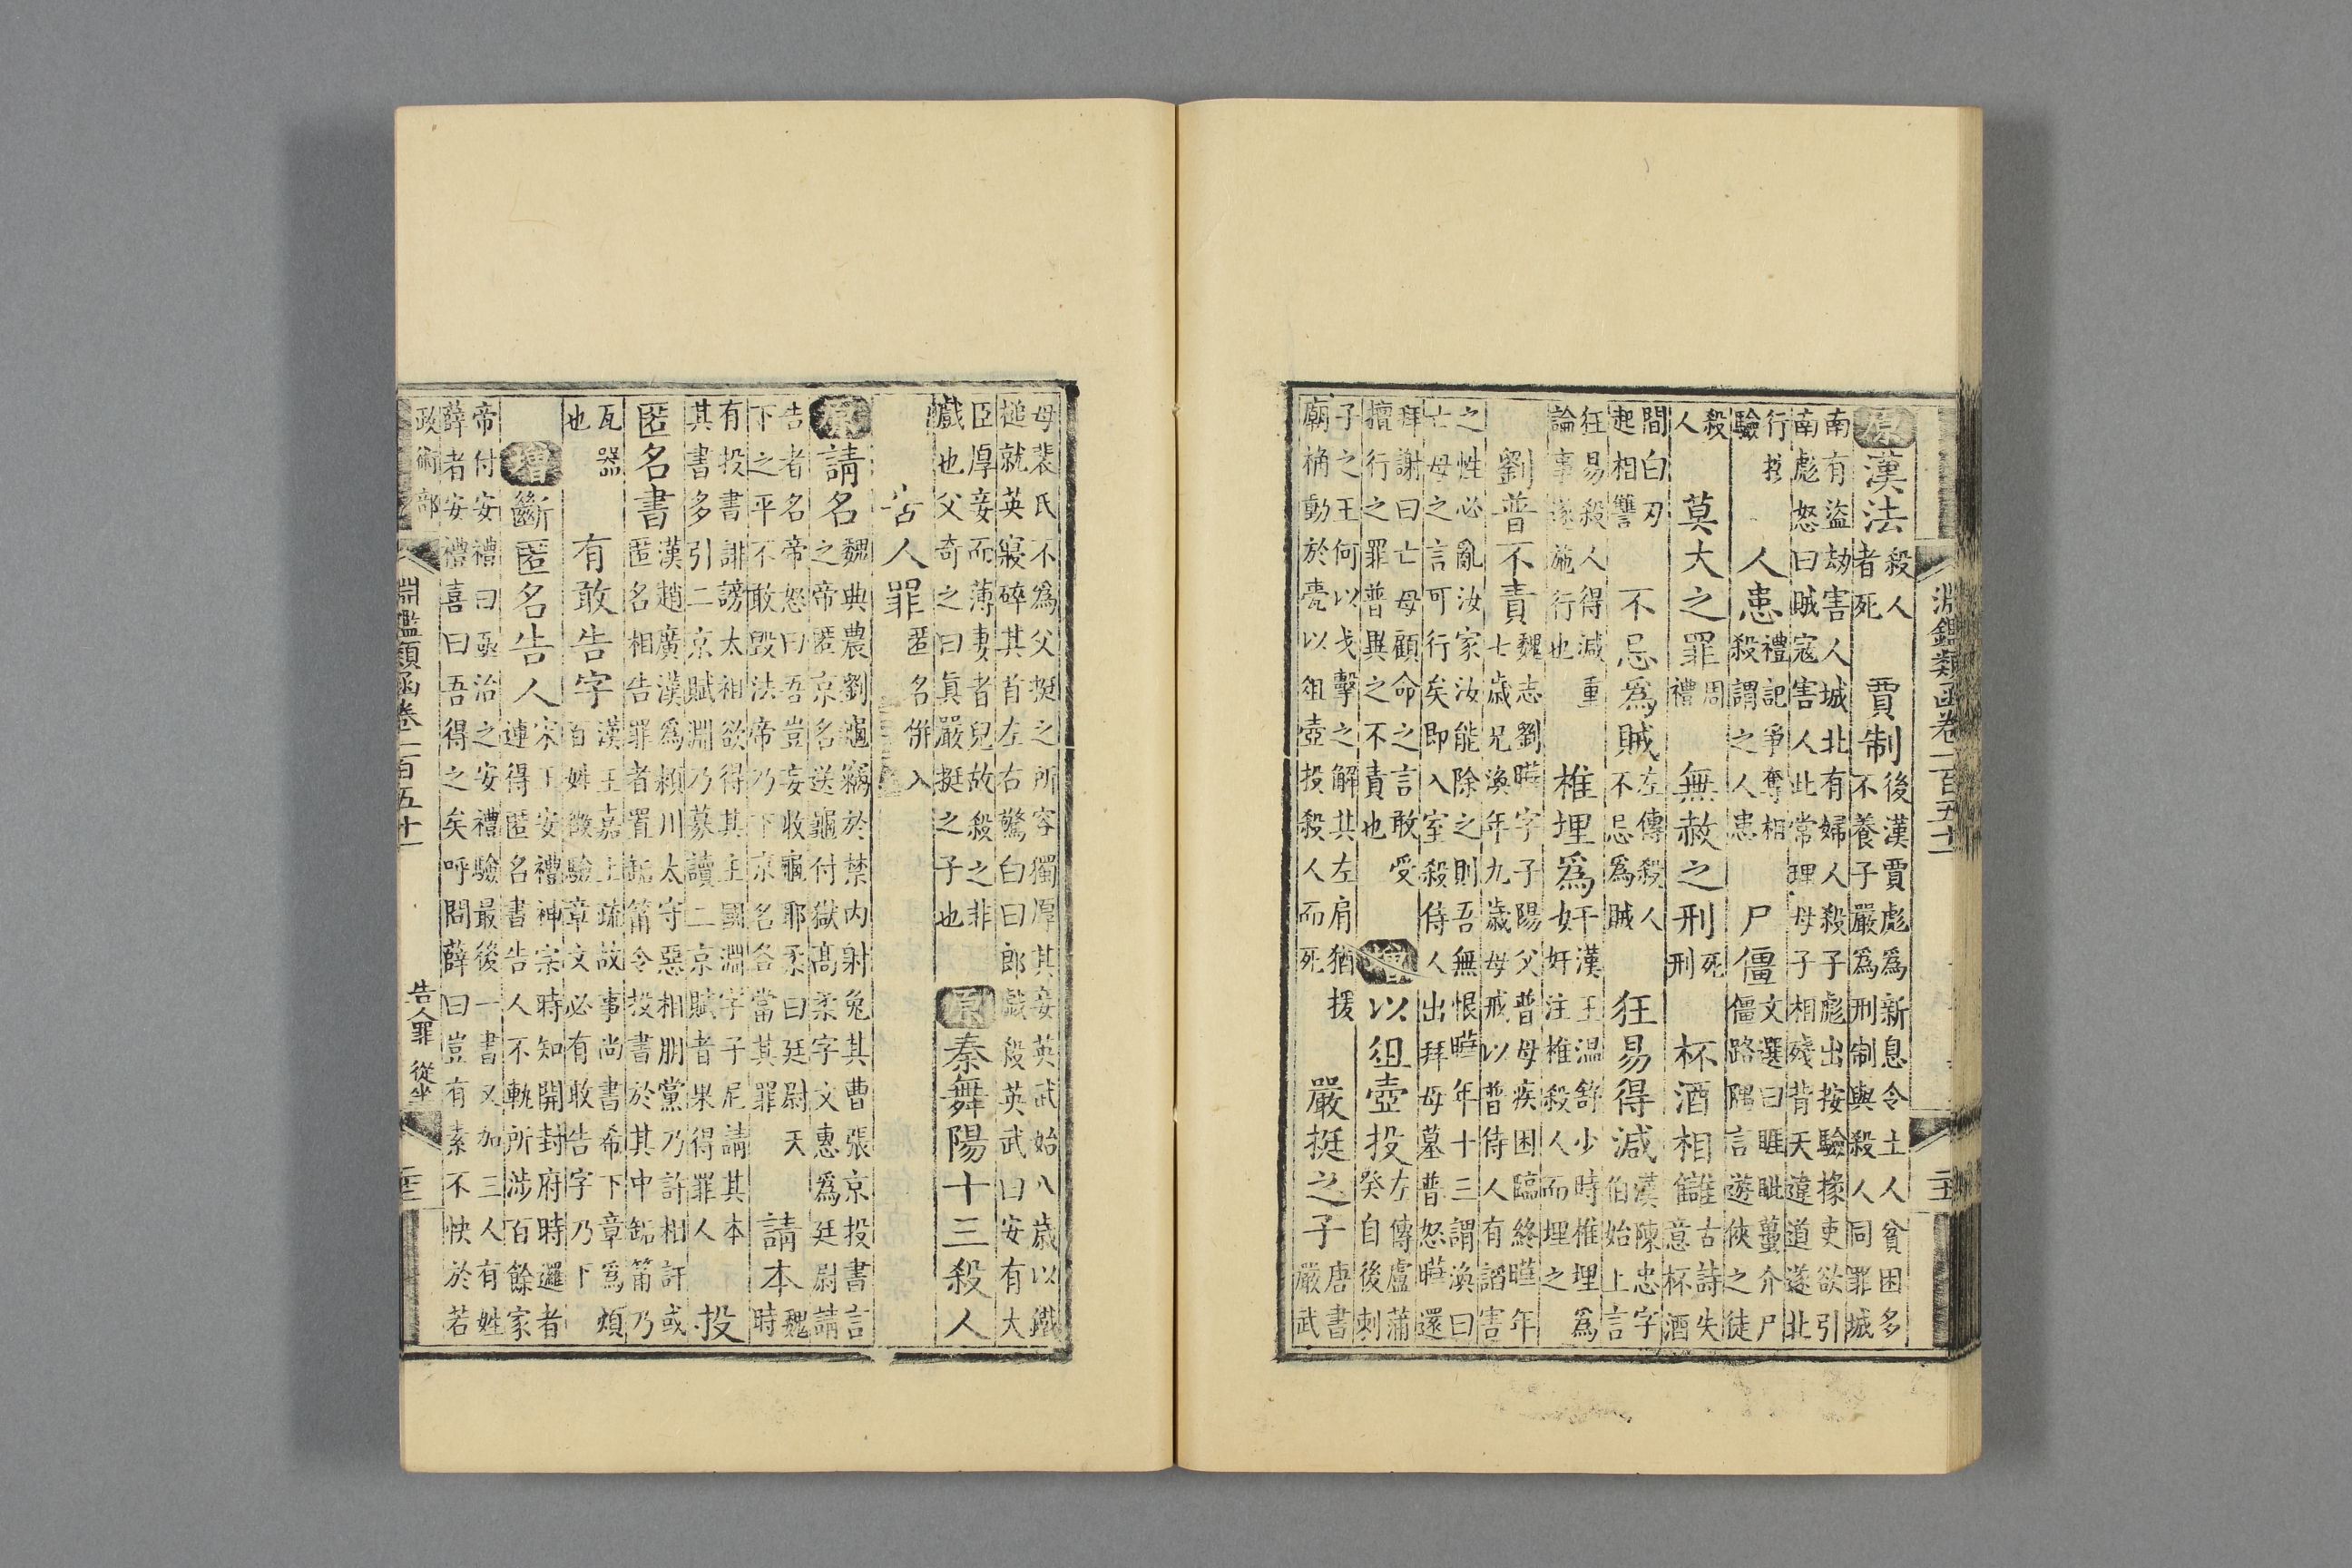 淵鑑類函卷一百五十一
原漢法 殺人者死 賈制 後漢賈彪爲新息令土人貧困多不養子嚴爲刑制與殺人同罪城
南有盜劫害人城北有婦人殺子彪出按驗掾吏欲引南彪怒曰賊寇害人此常理母子相殘背天違道遂北
行驗 人患 禮記爭奪相殺謂之人患 尸僵 文選曰睚眦蠆介尸僵路隅言遊俠之徒
殺人 莫大之罪 周禮 無赦之刑 死刑 杯酒相讎 古詩失意杯酒
間白刃起相讐 不忌爲賊 左傳殺人不忌爲賊 狂易得減 漢陳忠字伯始上言
狂易殺人得減重論事遂施行也 椎埋爲奸 漢王温舒少時椎埋爲奸注椎殺人而埋之
劉普不責 魏志劉曄字子陽父普母疾困臨終曄年七歲兄渙年九歲母戒以普侍人有諂害
之性必亂汝家汝能除之則吾無恨曄年十三謂渙曰亡母之言可行矣即入室殺侍人出拜母墓普怒曄還
拜謝曰亡母顧命之言敢受擅行之罪普異之不責也 增以俎壺投 左傳盧蒲癸自後刺
子之王何以戈擊之解其左肩猶援廟桷動於甍以俎壺投殺人而死 嚴挺之子 唐書嚴武
母裴氏不爲父挺之所容獨厚其妾英武始八歲以鐵槌就英寢碎其首左右驚白曰郎戲殺英武曰安有大
臣厚妾而薄妻者兒故殺之非戲也父奇之曰眞嚴挺之子也 原秦舞陽十三殺人
告人罪 匿名併入
原請名 魏典農劉龜竊於禁内射兔其曹張京投書言之帝匿京名送龜付獄髙柔字文惠爲廷尉請
告者名帝怒曰吾豈妄收龜耶柔曰廷尉天下之平不敢毁法帝乃下京名各當其罪 請本 魏時
有投書誹謗太祖欲得其主國淵字子尼請其本其書多引二京賦淵乃募讀二京賦者果得罪人 投
匿名書 漢趙廣漢爲潁川太守惡相朋黨乃許相訐或匿名相告罪者置缿筩令投書於其中缿筩乃
瓦器也 有敢告字 漢王嘉上疏故事尚書希下章爲煩百姓徵驗章文必有敢告字乃下
增斷匿名告人 宋王安禮神宗時知開封府時邏者連得匿名書告人不軌所涉百餘家
帝付安禮曰亟治之安禮驗最後一書又加三人有姓薛者安禮喜曰吾得之矣呼問薛曰豈有素不快於若
政術部 淵鑑類函卷一百五十一 告人罪 從坐